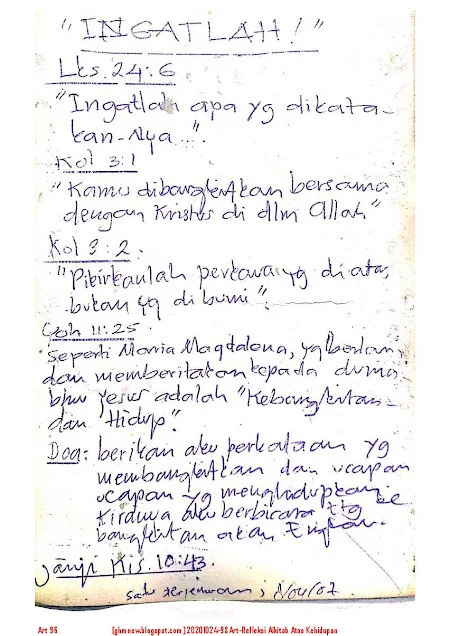 "INGATLAH!"
Lks. 24:6
"Ingatlah apa yg dikata-
kan-Nya...".
Kol 3:1
"Kamu dibangkitkan bersama
dengan Kristus di dlm Allah"
Kol 3:2.
"Pikirkanlah perkara yg diatas,
bukan yg di bumi".
Yoh 11:25.
Seperti Maria Magdalena, yg berlari
dan memberitakan kepada dunia
bhw Yesus adalah "Kebangkitan
dan Hidup".
Doa: berikan aku perkataan yg
membangkitkan dan ucapan
ucapan yg menghidupkan.
aku berbicara ttg ke
bangkitan akan
Janji Kis. 10:43.
Art 96
[ghmnew.blogspot.com] 20201024-98 Art-Refleksi Alkitab Atas Kehidupan